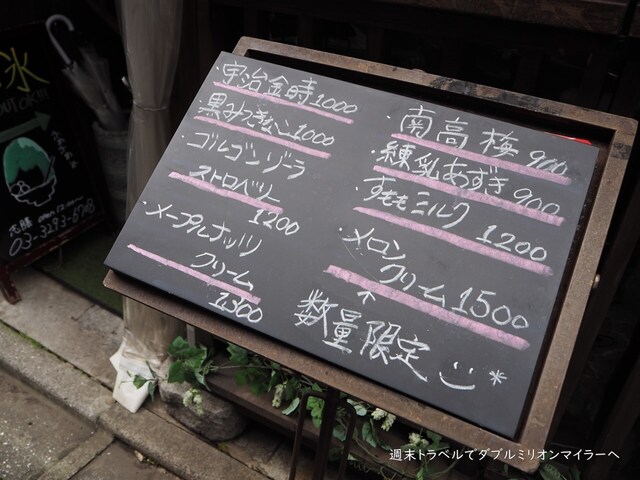 氷
・宇治金時1000
・黒みつきなこ1000
・ゴルゴンゾーラ
ストロベリー
1200
・メープルナッツ
クリーム
1300
・南高梅900
・練乳あずき900
・すももミルク
1200
・メロン
クリーム1500
↑
数量限定
03-3293-6178
週末トラベルでダブルミリオンマイラーへ